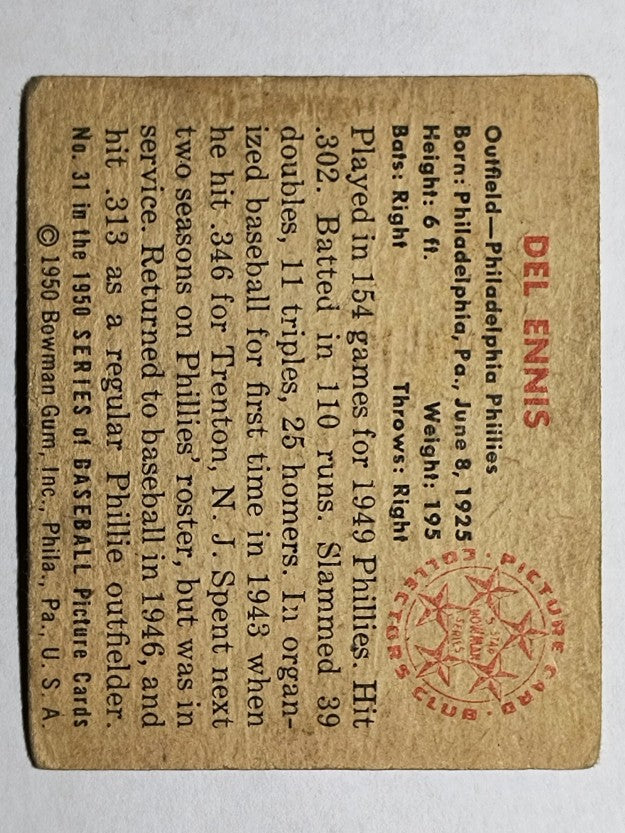 DEL ENNIS
Outfield—Philadelphia Phillies
Born: Philadelphia, Pa., June 8, 1925
Height: 6 ft. Weight: 195
Bats: Right Throws: Right
PICTURE CARD COLLECTORS CLUB
5-STAR
BOWMAN
SERIES
Played in 154 games for 1949 Phillies. Hit
.302. Batted in 110 runs. Slammed 39
doubles, 11 triples, 25 homers. In organ-
ized baseball for first time in 1943 when
he hit .346 for Trenton, N. J. Spent next
two seasons on Phillies' roster, but was in
service. Returned to baseball in 1946, and
hit .313 as a regular Phillie outfielder.
No. 31 in the 1950 SERIES of BASEBALL Picture Cards
© 1950 Bowman Gum, Inc., Phila., Pa., U. S. A.